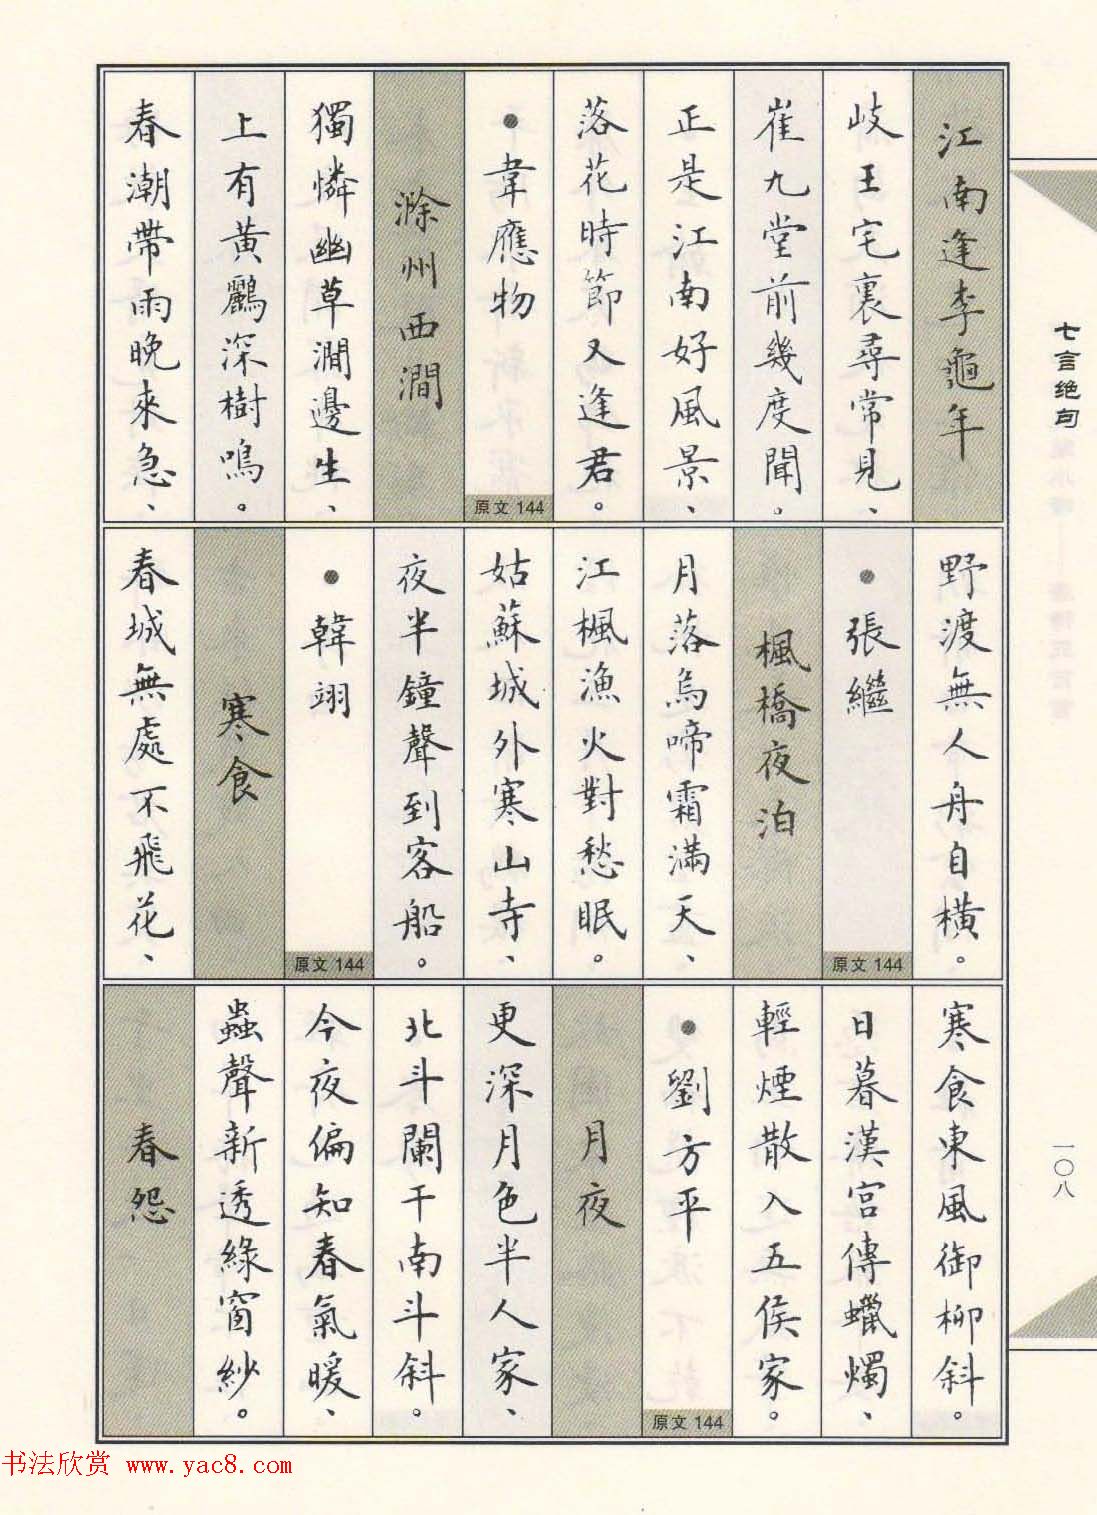 江南逢李龜年
岐王宅裏尋常見、
崔九堂前幾度聞。
正是江南好風景、
落花時節又逢君。
●韋應物
原文144
滁州西澗
獨憐幽草澗邊生、
上有黃鸝深樹鳴。
春潮帶雨晚來急、
野渡無人舟自橫。
●張繼
原文144
楓橋夜泊
月落烏啼霜滿天、
江楓漁火對愁眠。
姑蘇城外寒山寺、
夜半鐘聲到客船。
●韓翊
原文144
寒食
春城無處不飛花、
寒食東風御柳斜。
日暮漢宮傳蠟燭、
輕煙散入五侯家。
●劉方平
原文144
月夜
更深月色半人家、
北斗闌干南斗斜。
今夜偏知春氣暖、
蟲聲新透綠窗紗。
春怨
七言绝句
一〇八
书法欣赏 www.yac8.com